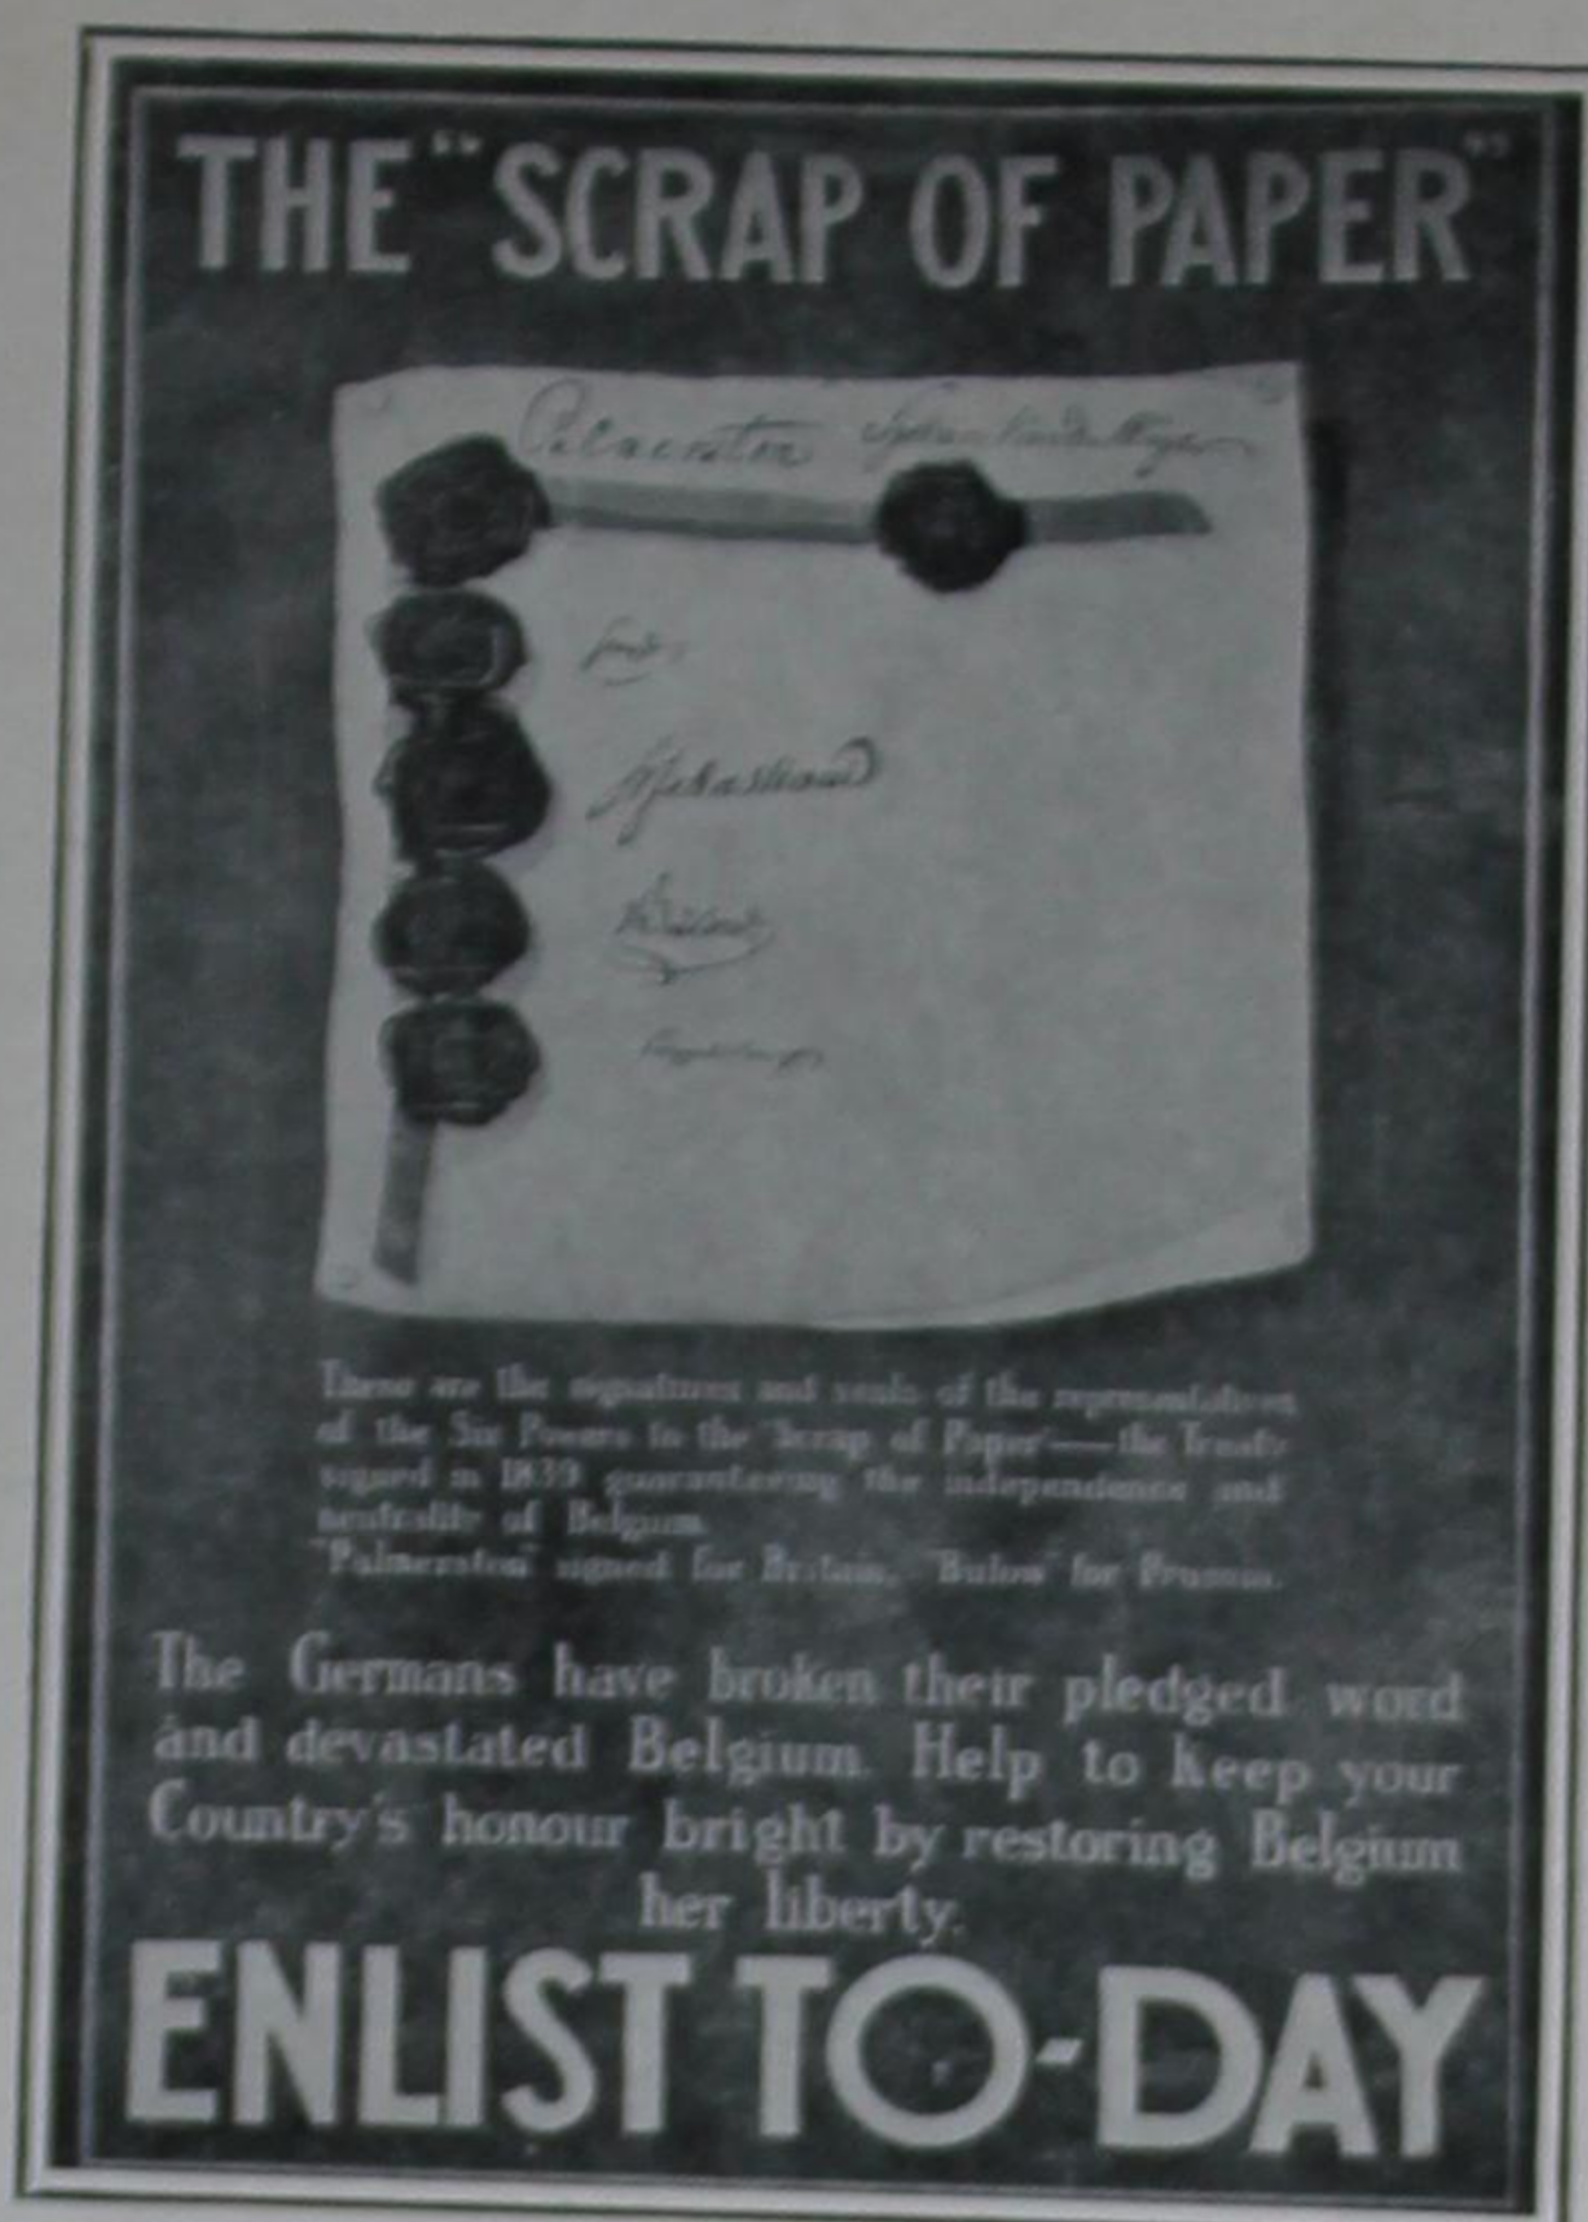 THE "SCRAP OF PAPER"
These are the signatures and seals of the representatives
of the Six Powers to the "Scrap of Paper"—the Treaty
signed in 1839 guaranteeing the independence and
neutrality of Belgium.
"Palmerston" signed for Britain, "Bulow" for Prussia.
The Germans have broken their pledged word
and devastated Belgium. Help to keep your
Country's honour bright by restoring Belgium
her liberty.
ENLIST TO-DAY